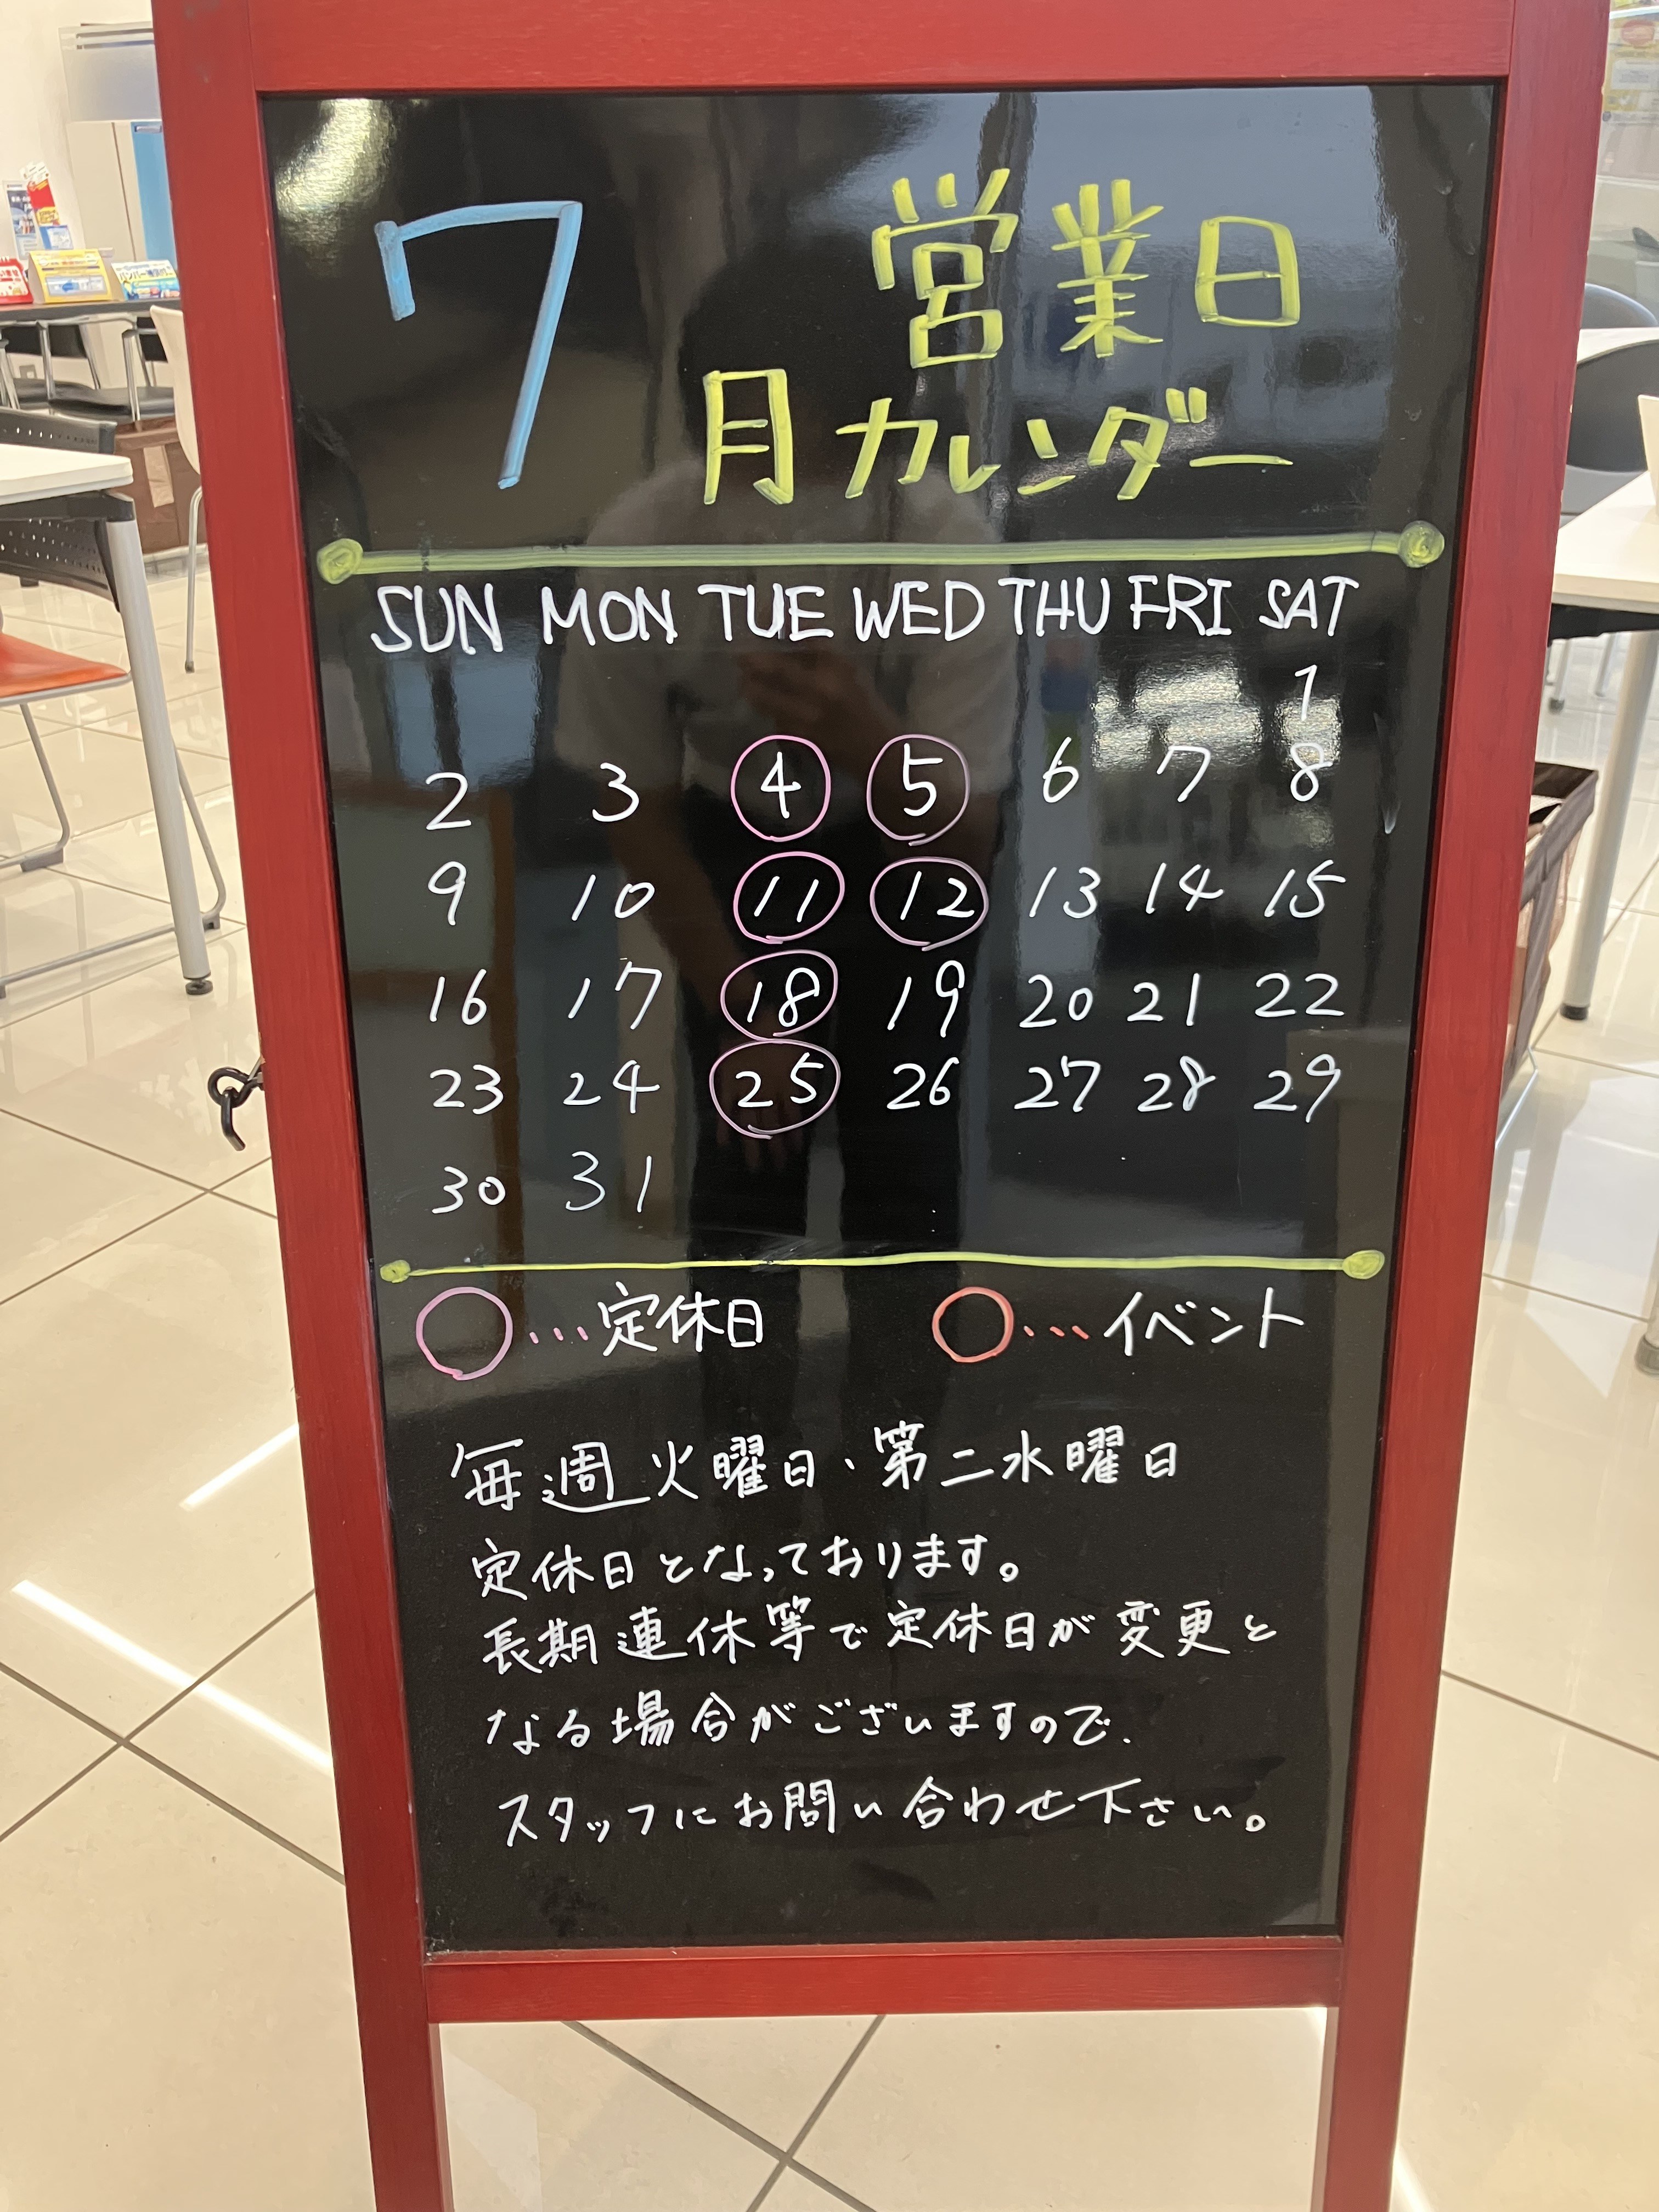 7
営業日
月カレンダー
SUN MON TUE WED THU FRI SAT
1
2 3 4 5 6 7 8
9 10 11 12 13 14 15
16 17 18 19 20 21 22
23 24 25 26 27 28 29
30 31
○…定休日 ○…イベント
毎週火曜日、第二水曜日
定休日となっております。
長期連休等で定休日が変更と
なる場合がございますので、
スタッフにお問い合わせ下さい。